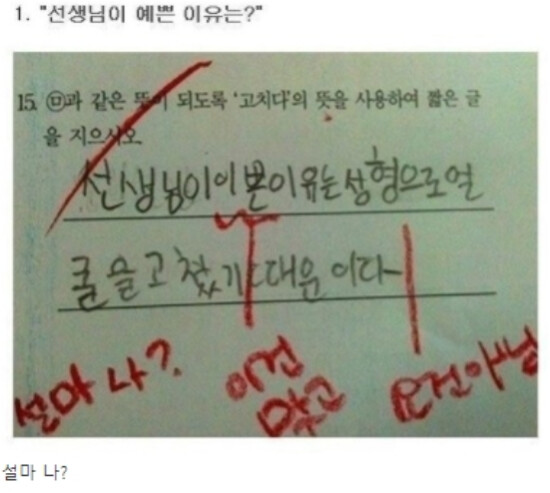 1. "선생님이 예쁜 이유는?"
15. ㅁ과 같은 뜻이 되도록 '고치다'의 뜻을 사용하여 짧은 글
을 지으시오.
선생님이 이쁜이유는 성형으로 얼
굴을 고쳤기 때문이다
설마 나? 이건 맞고 요건아님
설마 나?